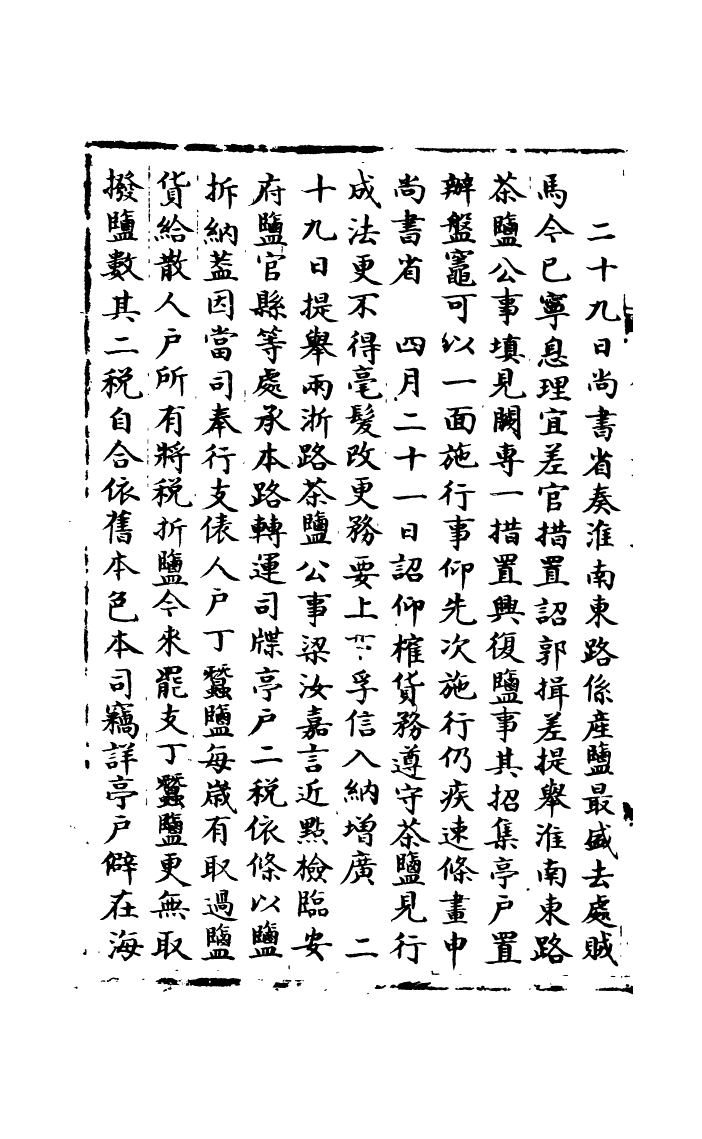 二十九日尚書省奏淮南東路係產鹽最盛去處賊
馬今已寧息理宜差官措置詔郭揖差提舉淮南東路
茶鹽公事填見闕專一措置興復鹽事其招集亭戶置
辦盤竈可以一面施行事仰先次施行仍疾速條畫申
尚書省　四月二十一日詔仰榷貨務遵守茶鹽見行
成法更不得毫髮改更務要上下孚信入納增廣　二
十九日提舉兩浙路茶鹽公事梁汝嘉言近點檢臨安
府鹽官縣等處承本路轉運司牒亭戶二稅依條以鹽
拆納蓋因當司奉行支俵人戶丁蠶鹽每歲有取過鹽
貨給散人戶所有將稅折鹽今來罷支丁蠶鹽更無取
撥鹽數其二稅自合依舊本色本司竊詳亭戶僻在海